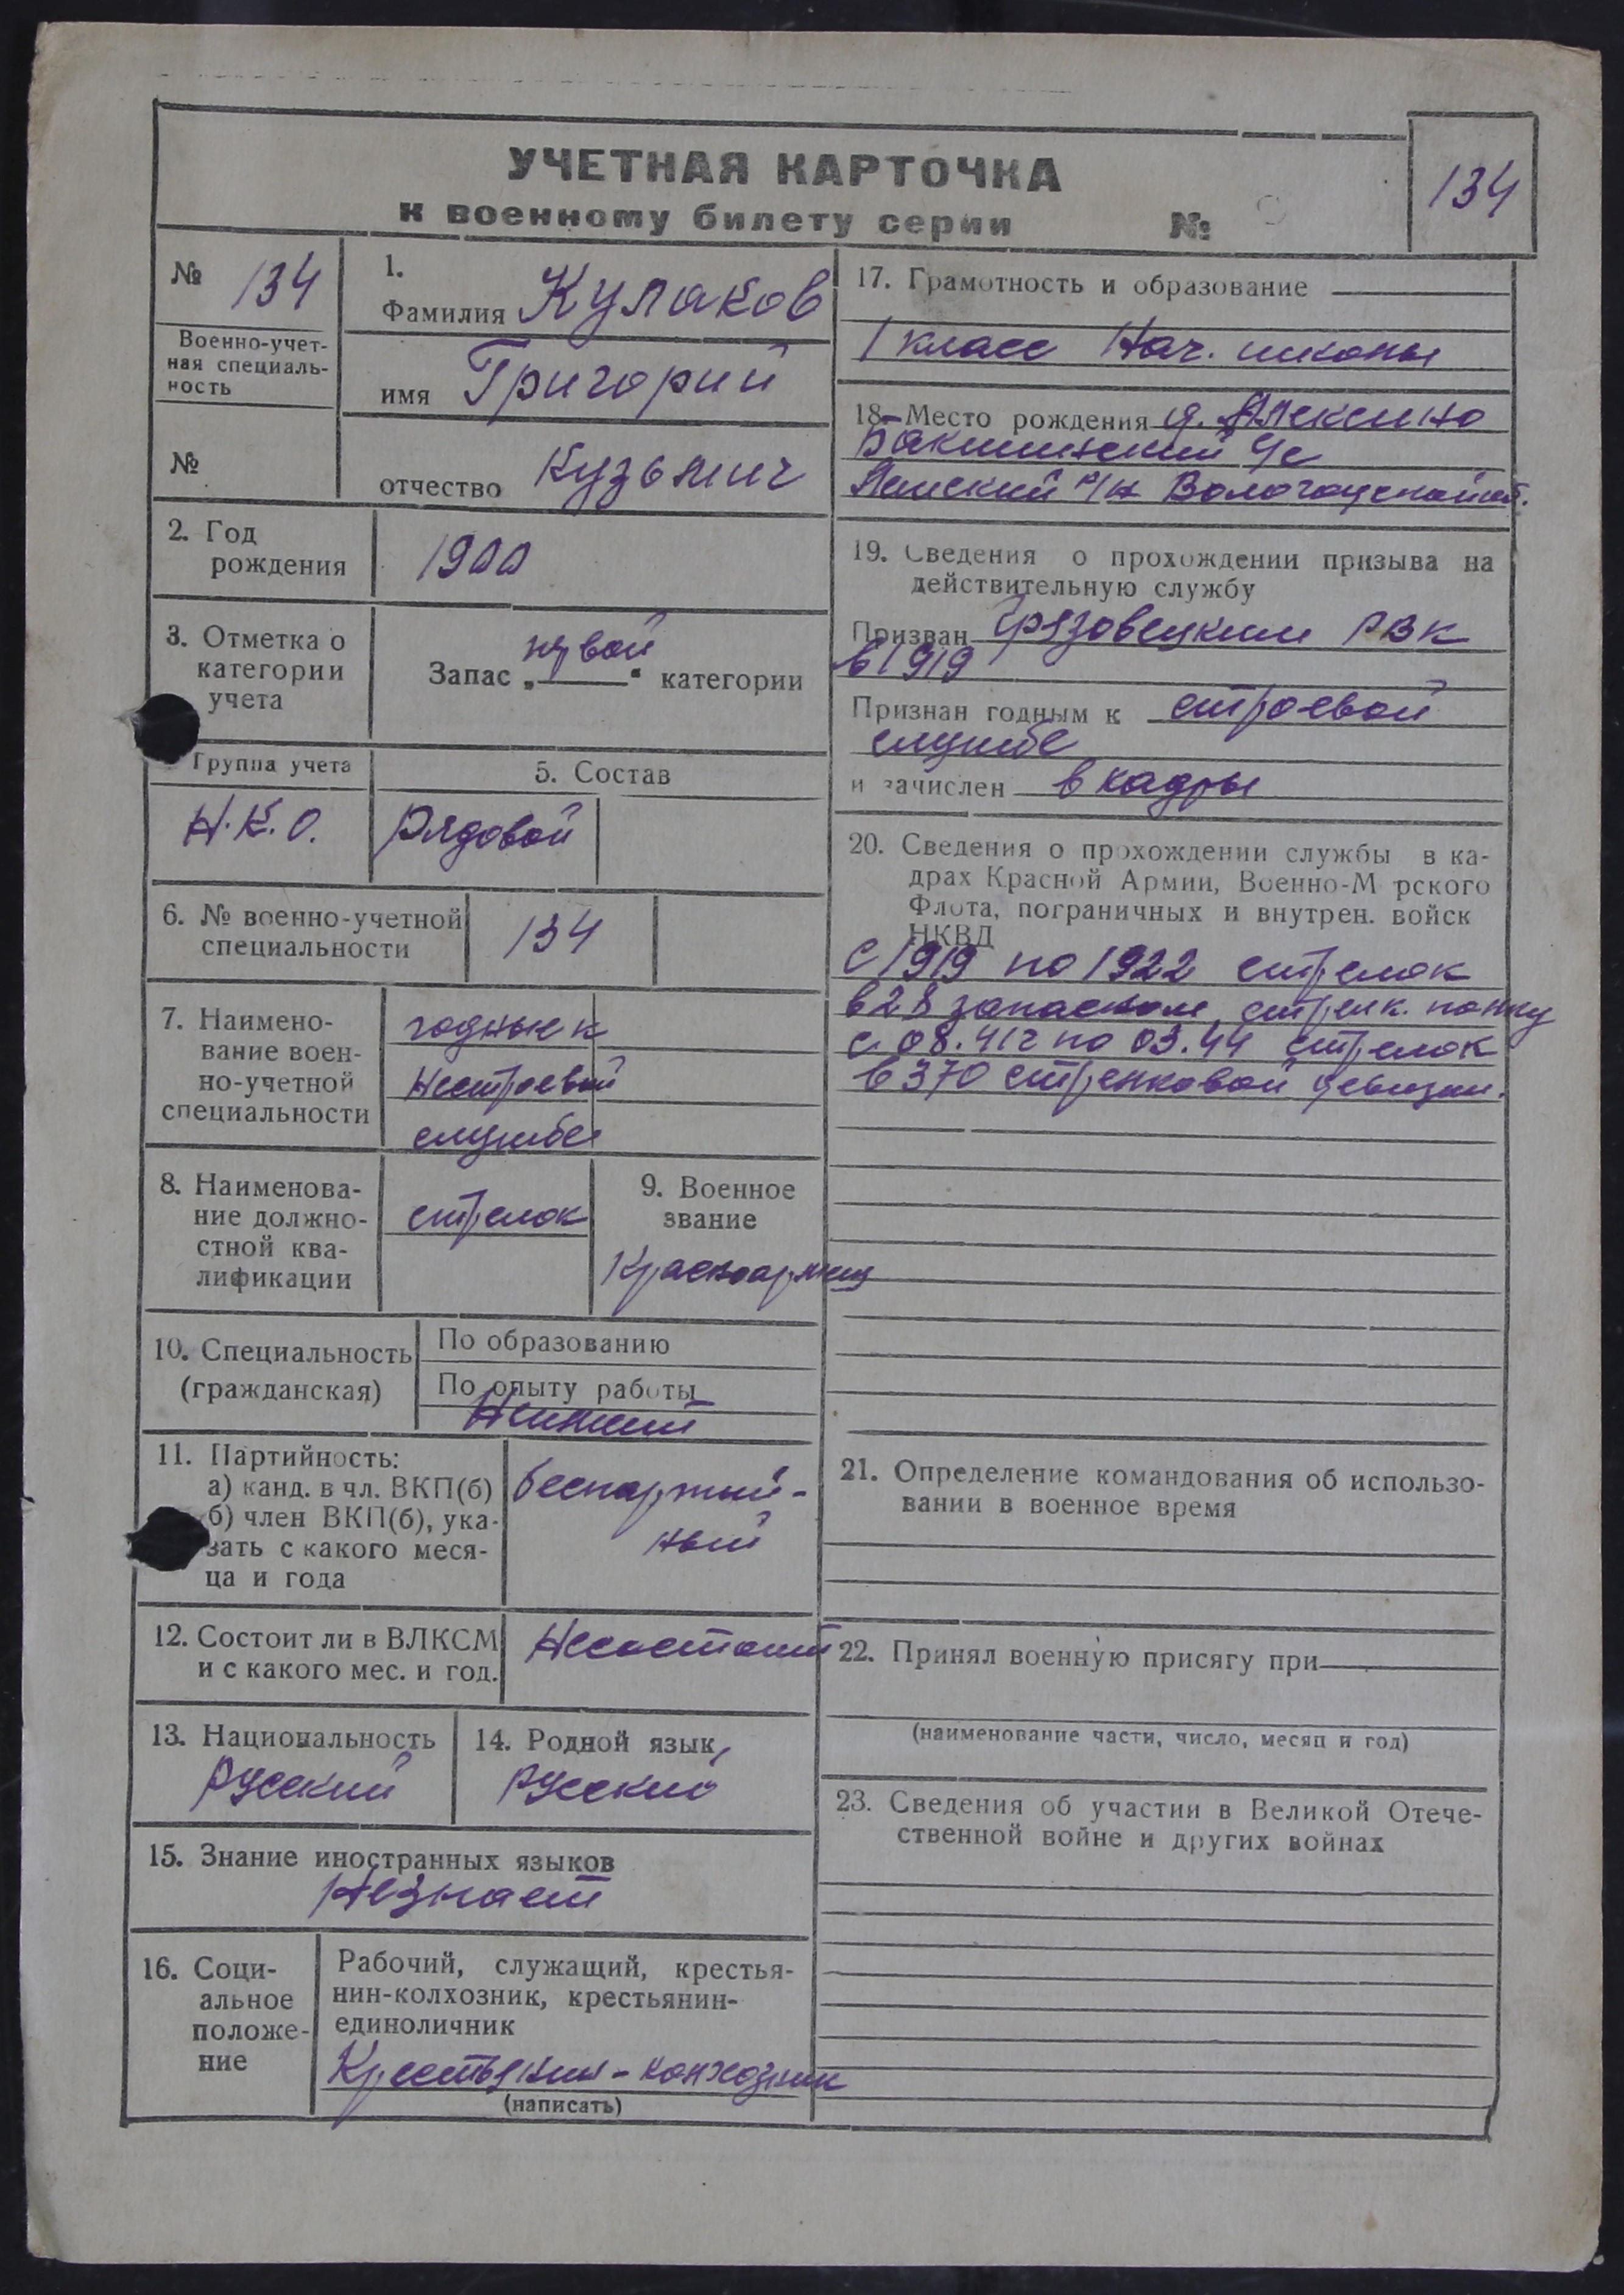 УЧЕТНАЯ КАРТОЧКА
к военному билету серии №
134
№ 134
Военно-учет-
ная специаль-
ность
№
1.
Фамилия Кулаков
имя Григорий
отчество Кузьмич
2. Год
рождения
1900
3. Отметка о
категории
учета
Запас „ первой “ категории
Группа учета
Н.К.О.
5. Состав
Рядовой
6. № военно-учетной
специальности
134
7. Наимено-
вание воен-
но-учетной
специальности
годные к
нестроевой
службе
8. Наименова-
ние должно-
стной ква-
лификации
стрелок
9. Военное
звание
Красноармеец
10. Специальность
(гражданская)
По образованию
По опыту работы
11. Партийность:
а) канд. в чл. ВКП(б)
б) член ВКП(б), ука-
зать с какого меся-
ца и года
беспартий-
ный
12. Состоит ли в ВЛКСМ
и с какого мес. и год.
Не состоит
13. Национальность
русский
14. Родной язык
русский
15. Знание иностранных языков
Не знает
16. Соци-
альное
положе-
ние
Рабочий, служащий, крестья-
нин-колхозник, крестьянин-
единоличник
Крестьянин-колхозник
(написать)
17. Грамотность и образование
1 класс Нач. школы
18. Место рождения д. Алексино
с/с
р/н Вологодской об.
19. Сведения о прохождении призыва на
действительную службу
Призван Грязовецким РВК
в 1919
Признан годным к строевой
службе
и зачислен в кадры
20. Сведения о прохождении службы в ка-
драх Красной Армии, Военно-М рского
Флота, пограничных и внутрен. войск
НКВД
С 1919 по 1922 стрелок
в 28 запасном стрелк. полку
с 08.41г по 03.44 стрелок
в 370 стрелковой дивизии.
21. Определение командования об использо-
вании в военное время
22. Принял военную присягу при
(наименование части, число, месяц и год)
23. Сведения об участии в Великой Отече-
ственной войне и других войнах